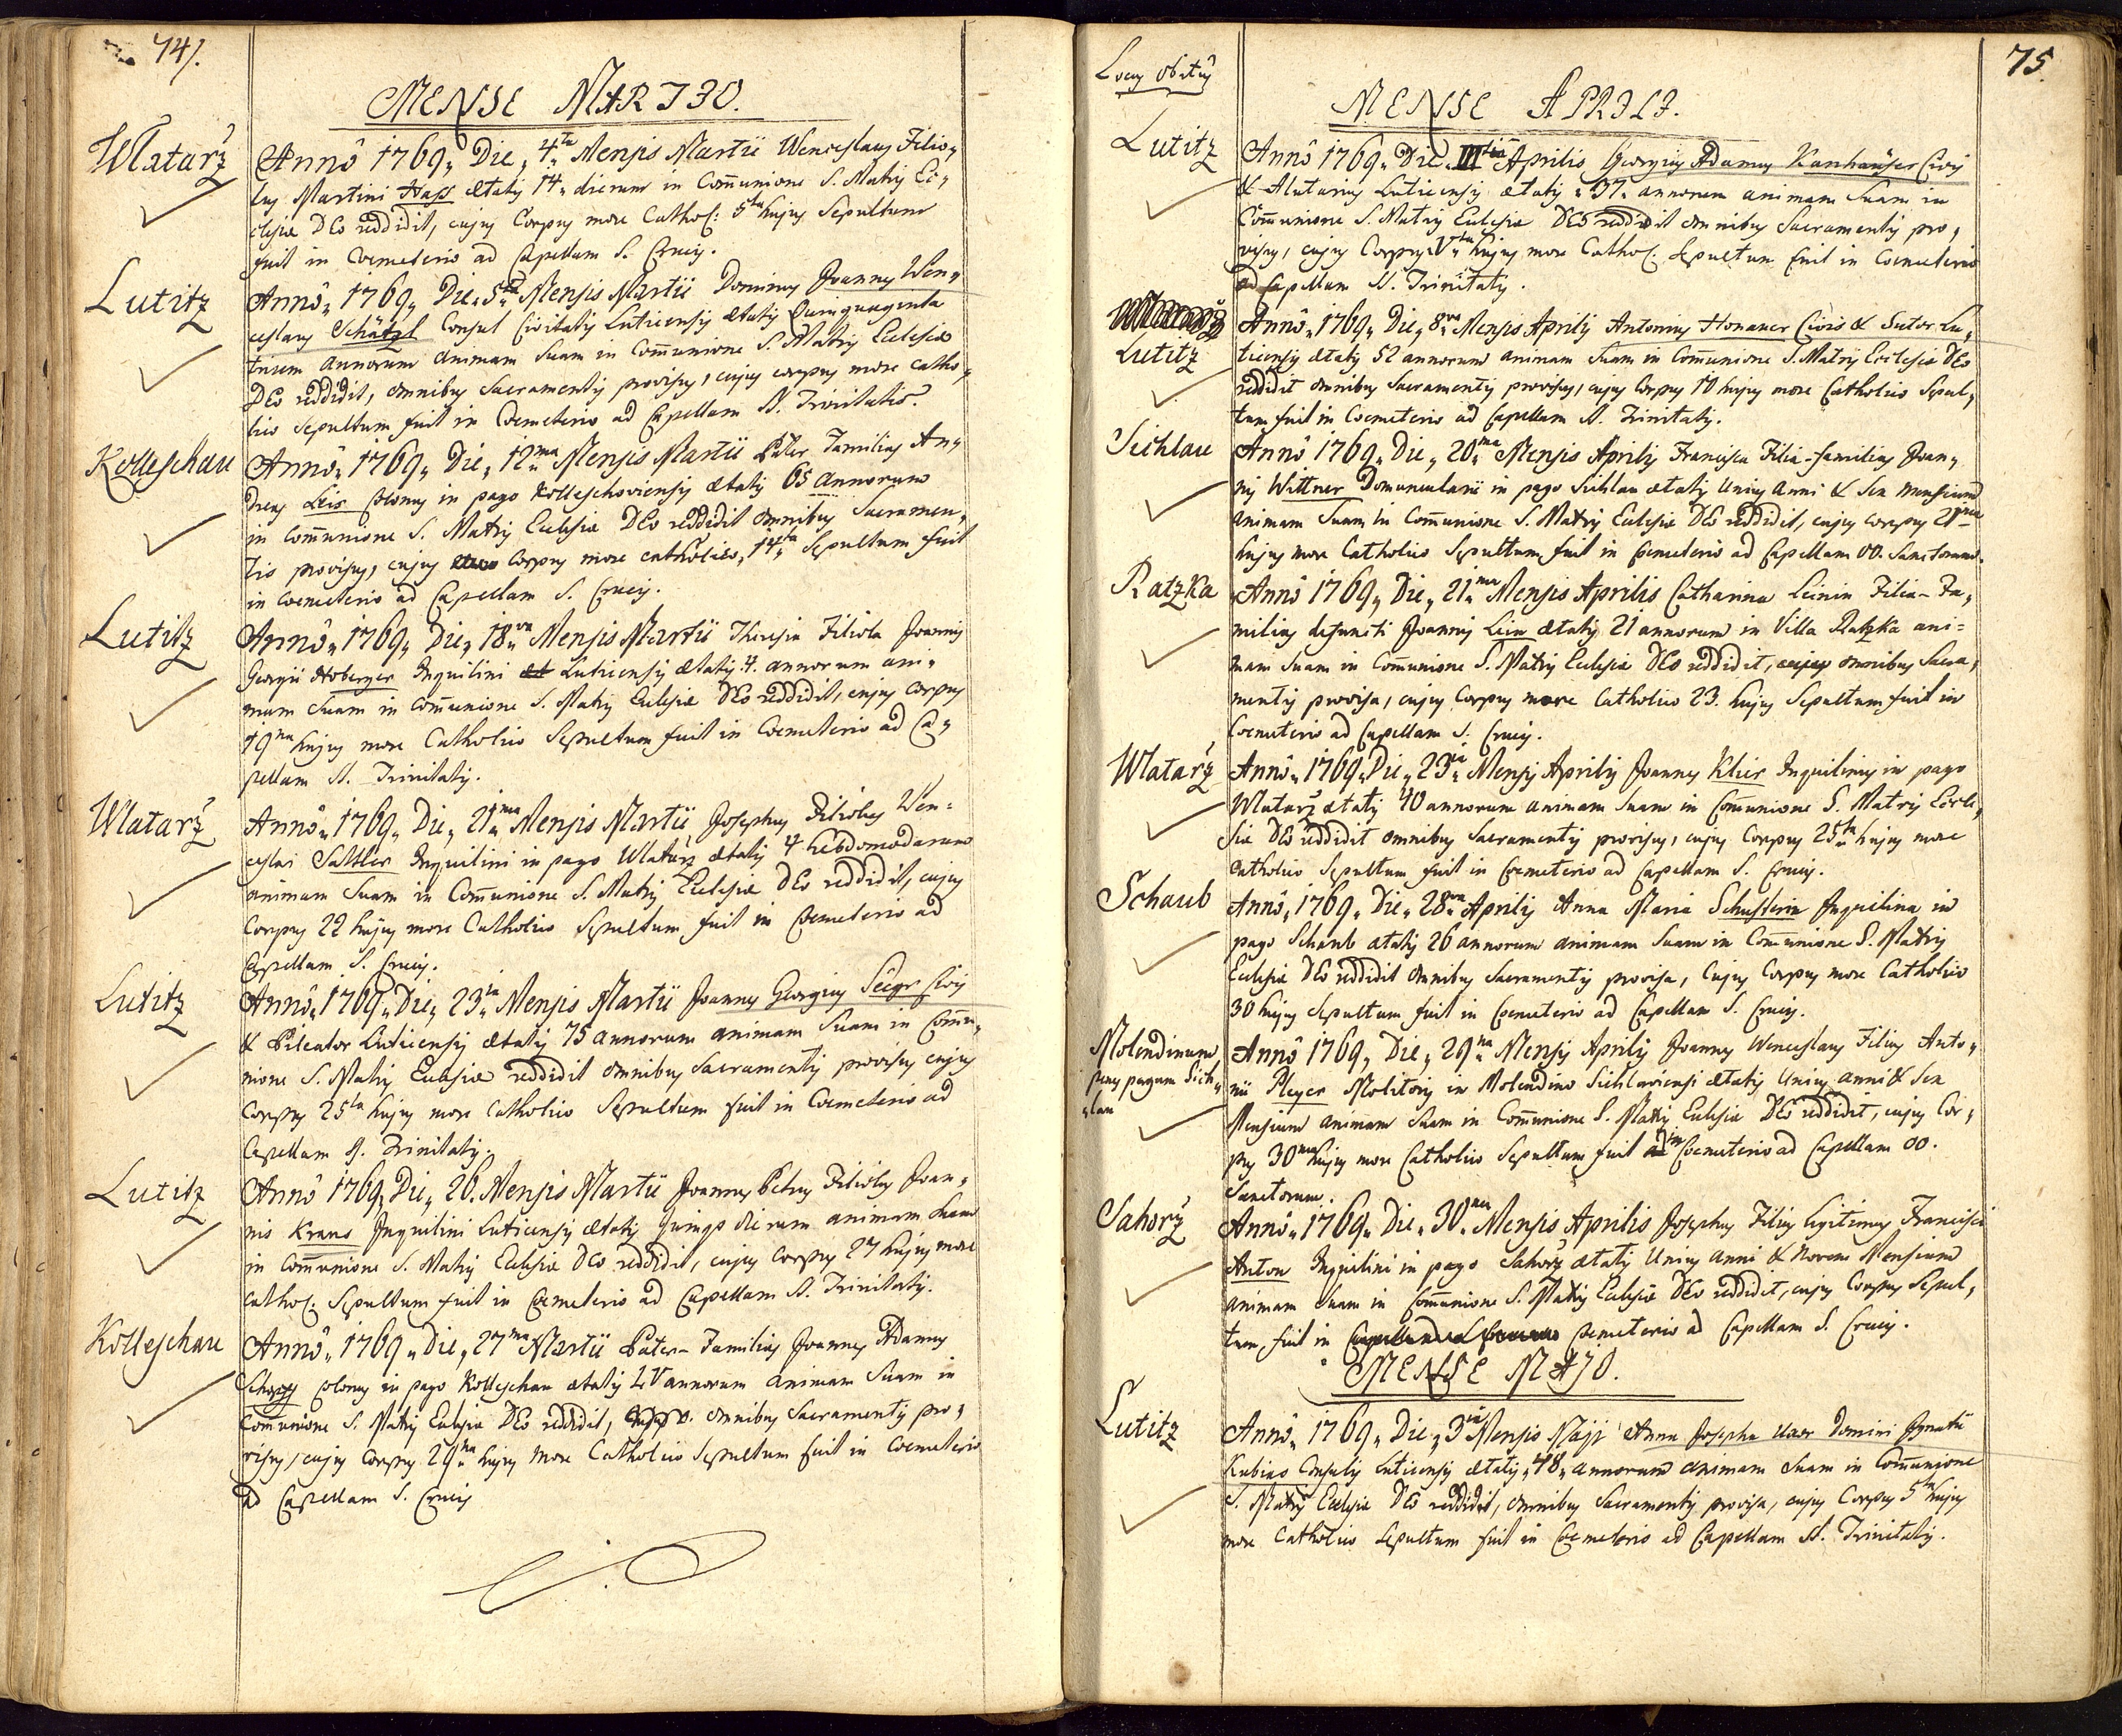 74.
MENSE MARTIO.
Wlatarž
Annô 1769„ Die„ 4ta Mensis Martii Wenceslaus Filio„
lus Martini Hass ætatis 14„ dierum in Com̄unione S. Matris Ec„
clesiæ DEo reddidit, cujus Corpus more Cathol: 5ta hujus Sepultum
fuit in Coemeterio ad Capellam S. Crucis.
Lutitz
Annô„ 1769„ Die„ 5ta Mensis Martii Dominus Joannes Wen„
ceslaus Schätzl Consul Civitatis Luticensis ætatis Quinquaginta
trium annorum animam suam in Com̄unione S. Matris Ecclesiæ
DEo reddidit, omnibus Sacramentis provisus, cujus corpus more catho„
lico Sepultum fuit in Coemeterio ad Capellam SS. Trinitatis.
Kolleschau
Annô„ 1769„ Die„ 12ma Mensis Martii Pater Familias An„
dreas Leis Colonus in pago Kolleschoviensis ætatis 65 annorum
in Com̄unione S. Matris Ecclesiæ DEo reddidit omnibus Sacramen„
tis provisus, cujus Corpus more catholico„ 14ta Sepultum fuit
in Coemeterio ad Capellam S. Crucis.
Lutitz
Annô„ 1769„ Die„ 18va Mensis Martii Theresia Filiola Joannis
Georgii Hoberger Inquilini Luticensis ætatis 4. annorum ani„
mam Suam in Com̄unione S. Matris Ecclesiæ DEo reddidit, cujus Corpus
19na hujus more Catholico Sepultum fuit in Coemeterio ad Ca„
pellam SS. Trinitatis.
Wlatarž
Annô„ 1769„ Die„ 21ma Mensis Martii Josephus Filiolus Wen=
ceslai Sattler Inquilini in pago Wlatarz ætatis 4 hebdomadarum
animam Suam in Com̄unione S. Matris Ecclesiæ DEo reddidit, cujus
Corpus 22 hujus more Catholico Sepultum fuit in Coemeterio ad
Capellam S. Crucis.
Lutitz
Annô„ 1769„ Die„ 23tia Mensis Martii Joannes Georgius Civis
& Pileator Luticensis ætatis 75 annorum animam Suam in Com̄u„
nione S. Matris Ecclesiæ reddidit omnibus Sacramentis provisus cujus
Corpus 25ta hujus more Catholico Sepultum fuit in Coemeterio ad
Capellam SS. Trinitatis.
Lutitz
Annô 1769„ Die„ 26. Mensis Martii Joannes Petrus Filiolus Joan„
nis Kraus Inquilini Luticensis ætatis quinque dierum animam suam
in Com̄unione S. Matris Ecclesiæ DEo reddidit, cujus Corpus 27 hujus more
Cathol: Sepultum fuit in Coemeterio ad Capellam SS. Trinitatis.
Kolleschau
Annô„ 1769„ Die„ 27ma Martii Pater-Familias Joannes Adamus
Colonus in pago Kolleschau ætatis LV annorum animam Suam in
Com̄unione S. Matris Ecclesiæ DEo reddidit, omnibus Sacramentis pro„
visus, cujus Corpus 29na hujus more Catholico Sepultum fuit in Coemeterio
ad Capellam S. Crucis
Locus obitus
75.
MENSE APRILI.
Lutitz
Annô 1769„ Die„ IIItia Aprilis Georgius Adamus Kanhäuser Civis
& Alutarius Luticensis ætatis „37„ annorum animam suam in
Com̄unione S. Matris Ecclesiæ DEo reddidit omnibus Sacramentis pro„
visus, cujus Corpus Vta hujus more Cathol. Sepultum fuit in Coemeterio
ad Capellam SS. Trinitatis.
Lutitz
Annô„ 1769„ Die„ 8va Mensis Aprilis Antonius Honauer Civis & Sutor Lu„
ticensis ætatis 52 annorum animam Suam in Com̄unione S. Matris Ecclesiæ DEo
reddidit omnibus Sacramentis provisus, cujus Corpus 10 hujus more Catholico Sepul„
tum fuit in Coemeterio ad Capellam SS. Trinitatis.
Sichlau
Annô 1769„ Die„ 20ma Mensis Aprilis Francisca Filia-familias Joan„
nis Wittner Domuncularii in pago Sichlau ætatis Unius Anni & Sex Mensium
animam Suam in Com̄unione S. Matris Ecclesiæ DEo reddidit, cujus Corpus 21ma
hujus more Catholico Sepultum fuit in Coemeterio ad Capellam OO. Sanctorum.
Ratzka
Annô 1769„ Die„ 21ma Mensis Aprilis Catharina Leinin Filia-Fa„
milias defuncti Joannis Lein ætatis 21 annorum in Villa Ratzka ani=
mam Suam in Com̄unione S. Matris Ecclesiæ DEo reddidit, omnibus Sacra„
mentis provisa, cujus Corpus more Catholico 23. hujus Sepultum fuit in
Coemeterio ad Capellam S. Crucis.
Wlatarž
Annô„ 1769„ Die„ 23tia Mensis Aprilis Joannes Klier Inquilinus in pago
Wlatarz ætatis 40 annorum animam Suam in Com̄unione S. Matris Eccle„
siæ DEo reddidit omnibus Sacramentis provisus, cujus Corpus 25ta hujus more
Catholico Sepultum fuit in Coemeterio ad Capellam S. Crucis.
Schaub
Annô„ 1769„ Die„ 28va Aprilis Anna Maria Schusterin Inquilina in
pago Schaub ætatis 26 annorum animam Suam in Com̄unione S. Matris
Ecclesiæ DEo reddidit omnibus Sacramentis provisa, Cujus Corpus more Catholico
30 hujus Sepultum fuit in Coemeterio ad Capellam S. Crucis.
Molendinum
penes pagum Sich„
„lau
Annô 1769„ Die„ 29na Mensis Aprilis Joannes Wenceslaus Filius Anto„
nii Pleyer Molitoris in Molendino Sichlaviensi ætatis Unius anni & Sex
Mensium animam Suam in Com̄unione S. Matris Ecclesiæ DEo reddidit, cujus Cor„
pus 30ma hujus more Catholico Sepultum fuit in Coemeterio ad Capellam OO.
Sanctorum.
Sahorž
Annô„ 1769„ Die„ 30ma Mensis Aprilis Josephus Filius legitimus Francisci
Anton Inquilini in pago Sahorz ætatis Unius Anni & Novem Mensium
animam Suam in Com̄unione S. Matris Ecclesiæ DEo reddidit, cujus Corpus Sepul„
tum fuit in Coemeterio ad Capellam S. Crucis.
MENSE MAJO.
Lutitz
Annô„ 1769„ Die„ 3tia Mensis Maji Anna Josepha Uxor Domini Ignatii
Kubias Consulis Luticensis ætatis „48„ annorum animam Suam in Com̄unione
S. Matris Ecclesiæ DEo reddidit, omnibus Sacramentis provisa, cujus Corpus 5ta hujus
more Catholico Sepultum fuit in Coemeterio ad Capellam SS. Trinitatis.